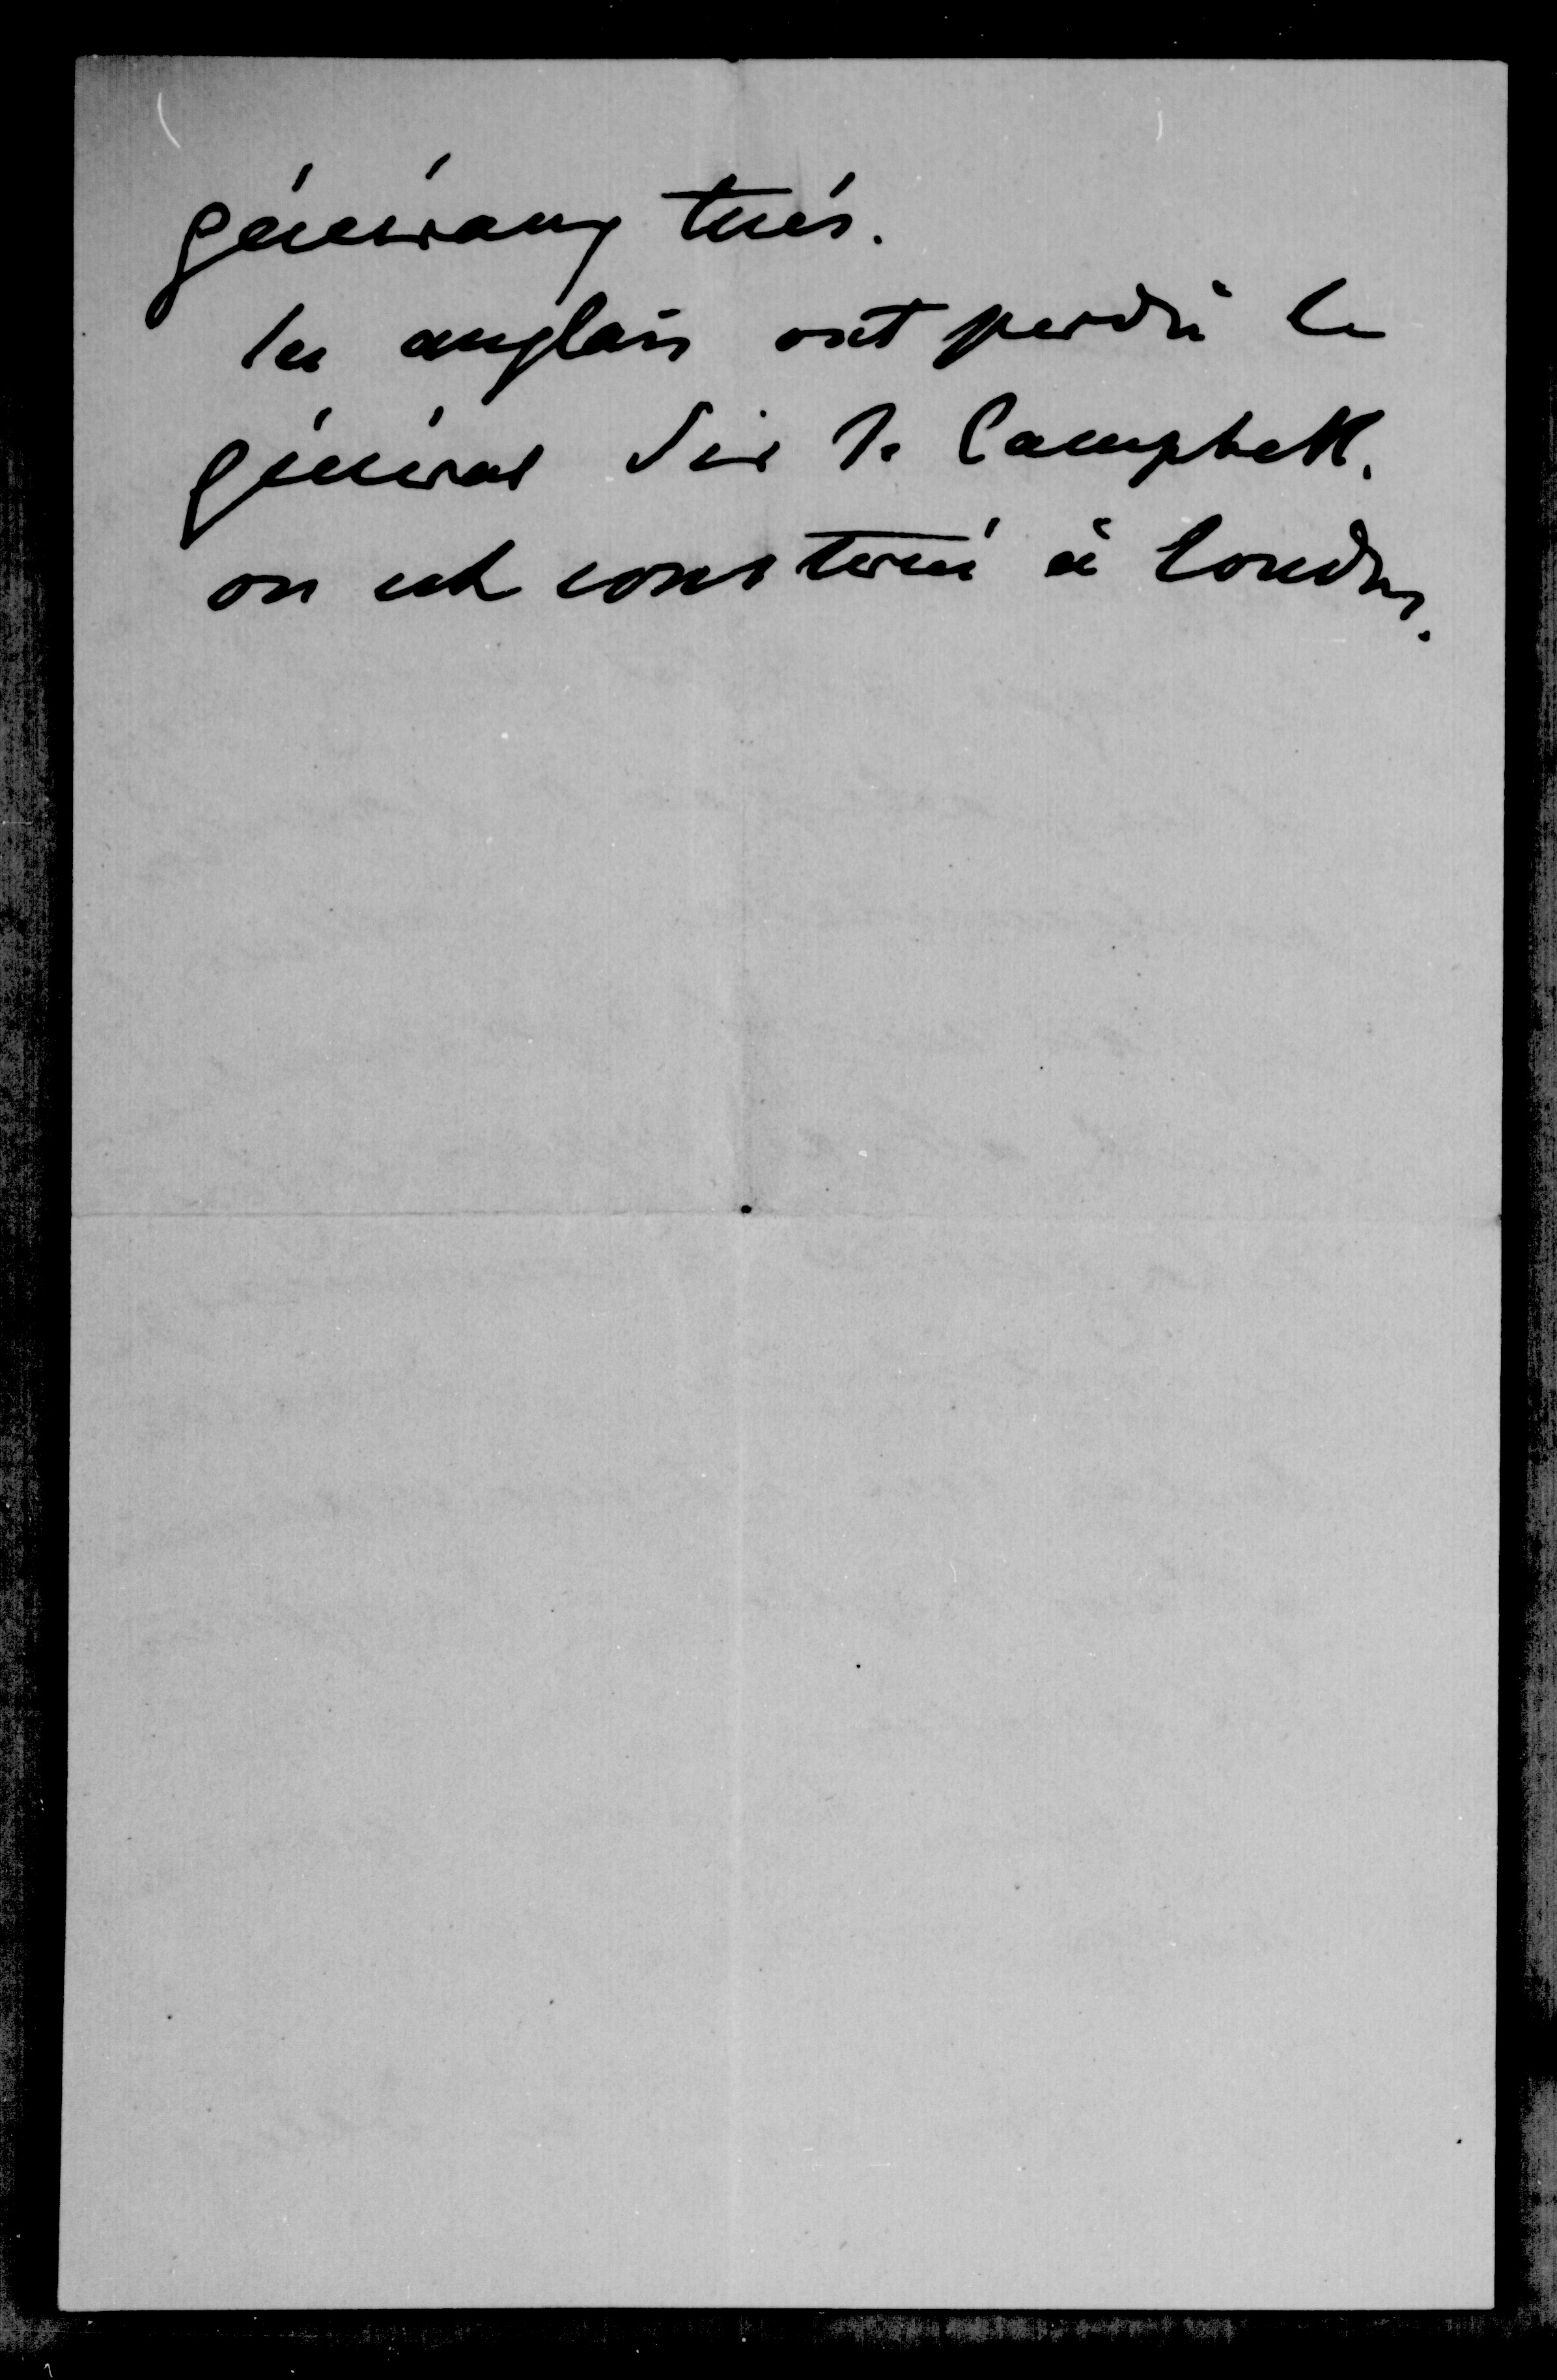 généraux tués.
les anglais ont perdu le
général Sir J. Campbell.
on est consterné à Londres.